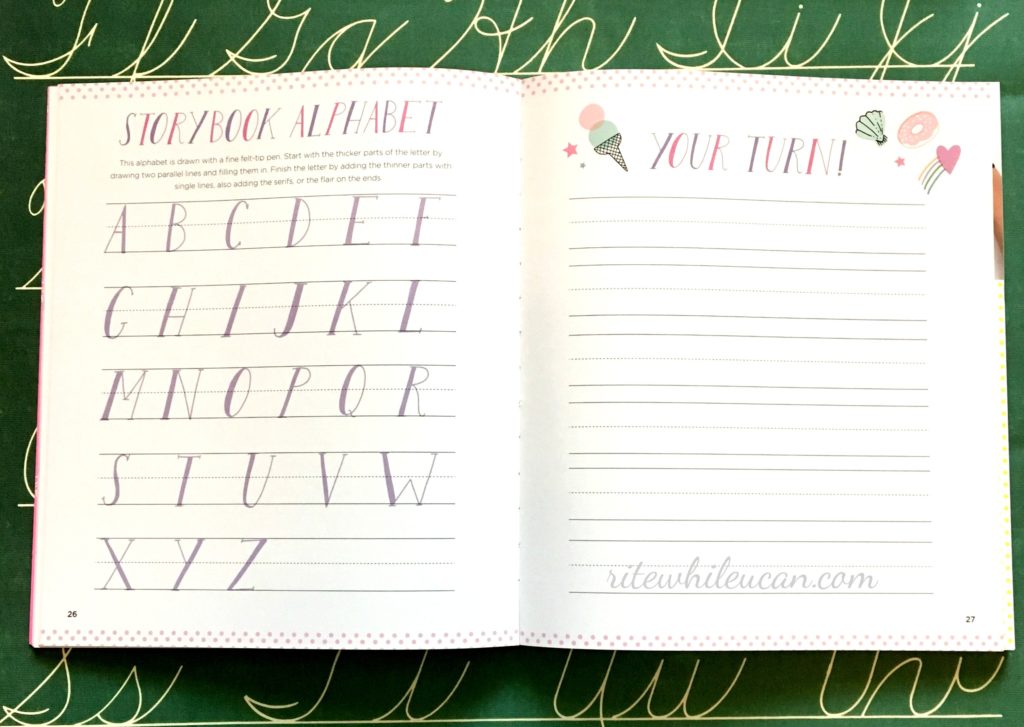 Ff Gg Hh Ii Jj
STORYBOOK ALPHABET
This alphabet is drawn with a fine felt-tip pen. Start with the thicker parts of the letter by
drawing two parallel lines and filling them in. Finish the letter by adding the thinner parts with
single lines, also adding the serifs, or the flair on the ends.
A B C D E F
G H I J K L
M N O P Q R
S T U V W
X Y Z
26
YOUR TURN!
ritewhileucan.com
27
Ss Tt Uu Vv